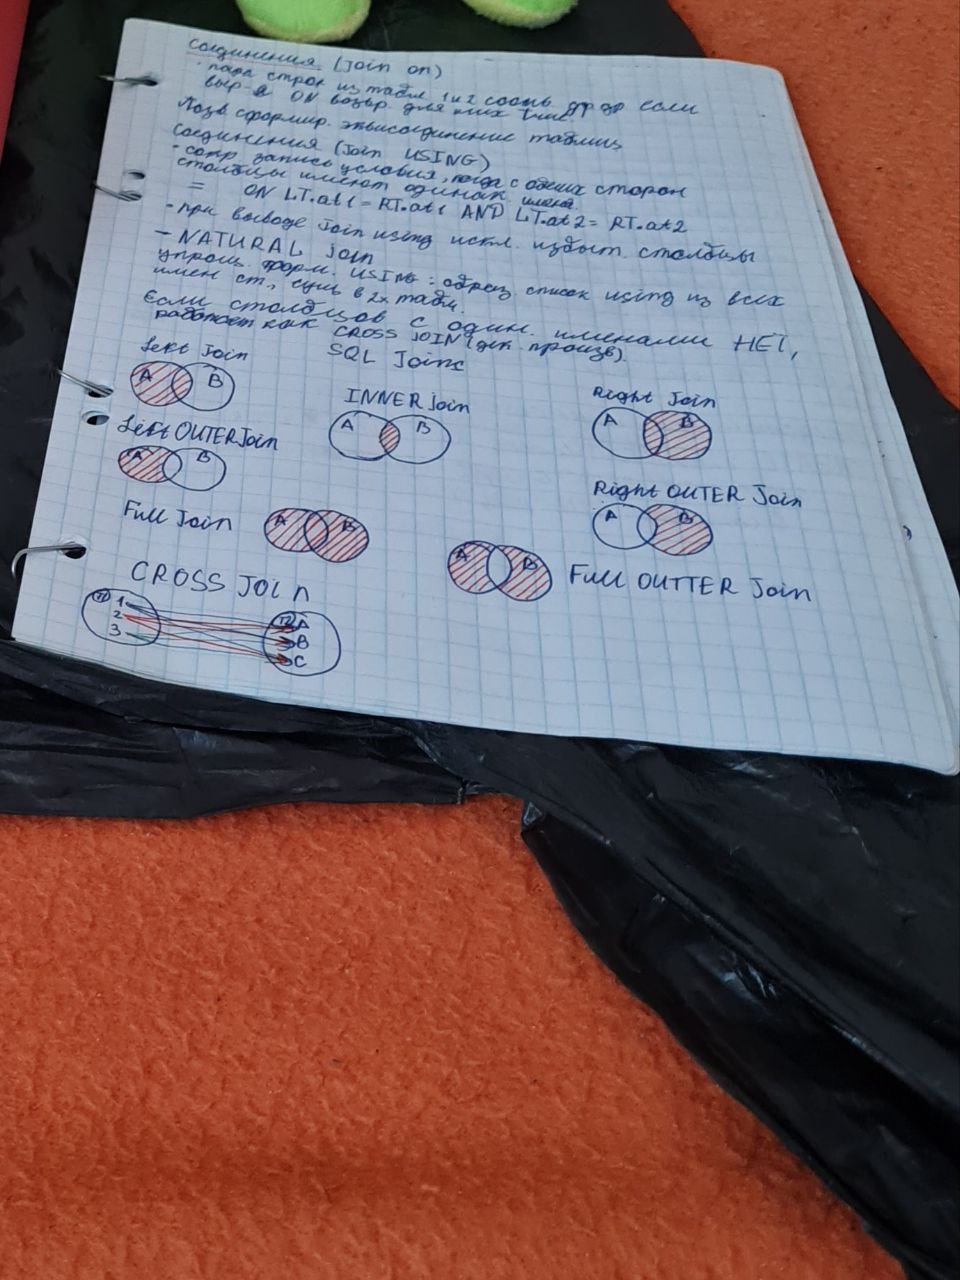 Соединения (Join on)
· пара строк из табл 1 и 2 соотв. др др если
выр-е ON возвр. для них true
Позв сформир. эквисоединение таблиц
Соединения (Join USING)
· сокр запись условия, когда с обеих сторон
столбцы имеют одинак. имена
= ON LT.at1 = RT.at1 AND LT.at2 = RT.at2
· при выводе Join using искл. избыт. столбцы
– NATURAL join
упрощ. форм. USING: образ список using из всех
имен ст., сущ в 2х табл.
Если столбцов с один. именами НЕТ,
работает как CROSS JOIN (дек. произв).
SQL Joins
Left Join
A B
INNER Join
A B
Right Join
A B
Left OUTER Join
A B
Right OUTER Join
A B
Full Join
A B
Full OUTTER Join
A B
CROSS JOIN
T1 1
2
3
T2 A
B
C